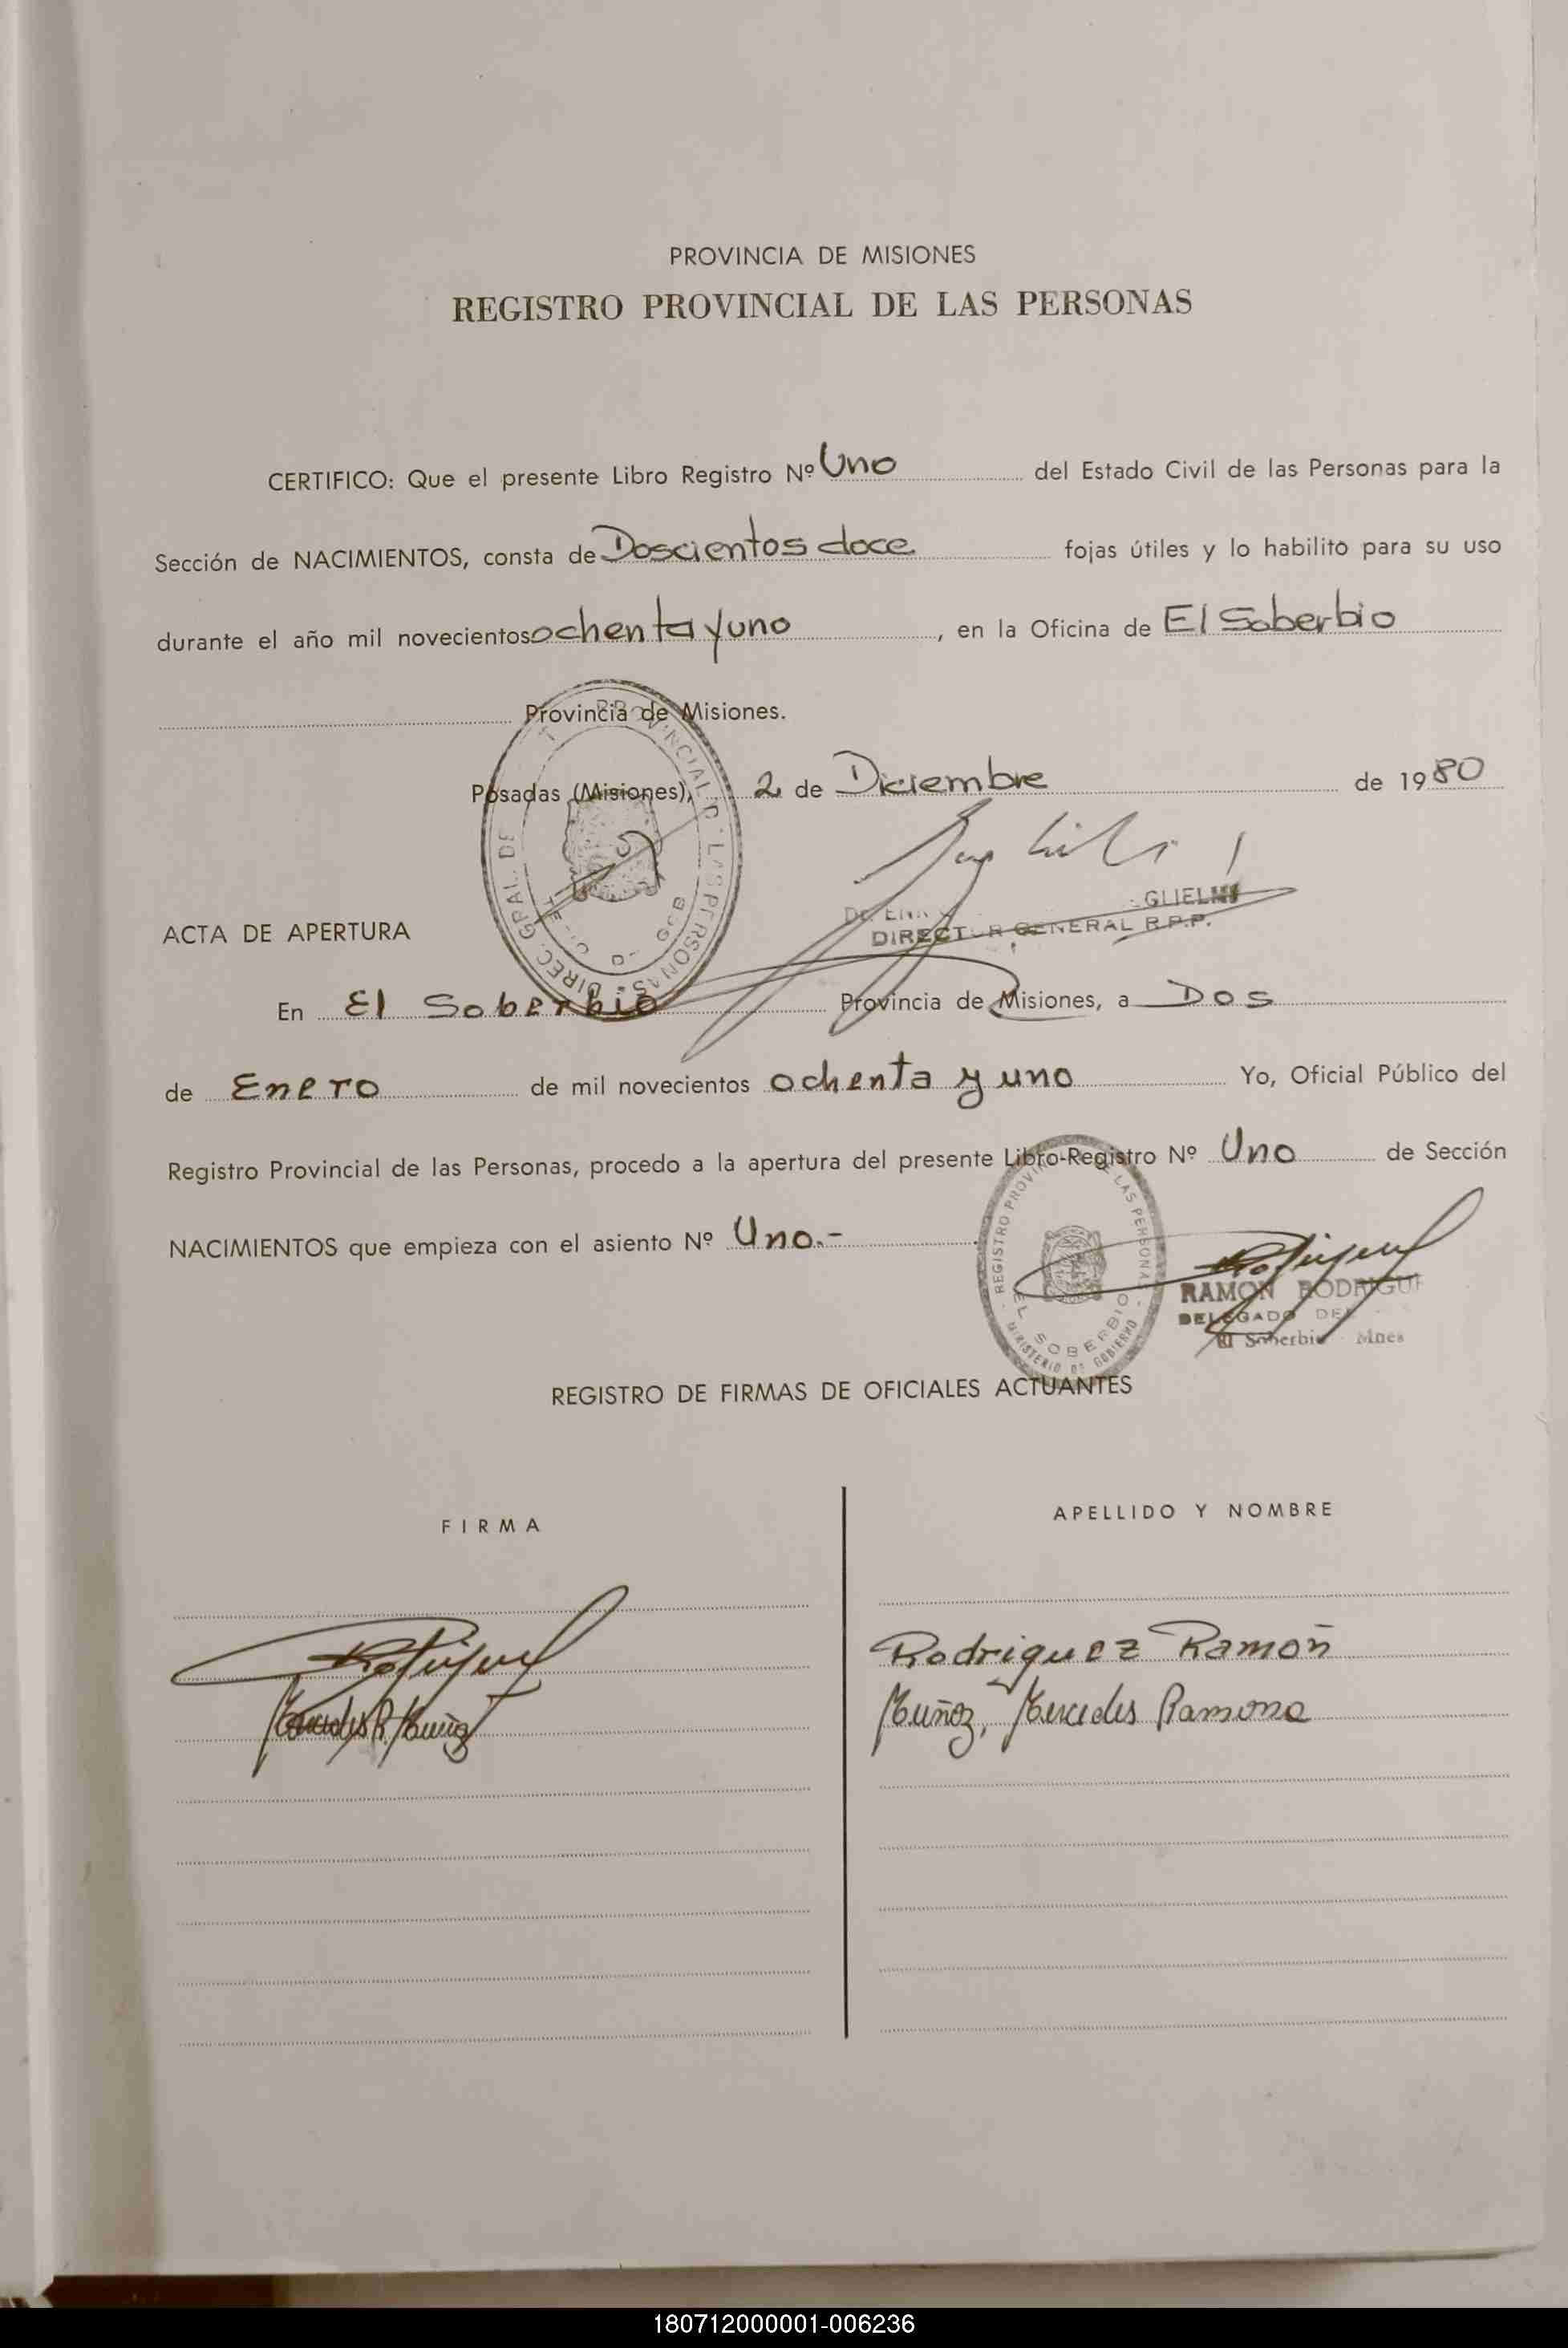 PROVINCIA DE MISIONES
REGISTRO PROVINCIAL DE LAS PERSONAS
CERTIFICO: Que el presente Libro Registro Nº Uno del Estado Civil de las Personas para la
Sección de NACIMIENTOS, consta de Doscientos doce fojas útiles y lo habilito para su uso
durante el año mil novecientos ochenta y uno, en la Oficina de El Soberbio
Provincia de Misiones.
Posadas (Misiones), 2 de Diciembre de 1980
GLIELMI
DIRECTOR GENERAL R.P.P.
ACTA DE APERTURA
En El Soberbio Provincia de Misiones, a Dos
de Enero de mil novecientos ochenta y uno Yo, Oficial Público del
Registro Provincial de las Personas, procedo a la apertura del presente Libro-Registro Nº Uno de Sección
NACIMIENTOS que empieza con el asiento Nº Uno.-
REGISTRO PROVINCIAL DE LAS PERSONAS
EL SOBERBIO
MINISTERIO DE GOBIERNO
RAMON RODRIGUE
DELEGADO DEL
El Soberbio Mnes
REGISTRO DE FIRMAS DE OFICIALES ACTUANTES
FIRMA APELLIDO Y NOMBRE
Rodriguez Ramón
Mercedes R. Muñoz Muñoz, Mercedes Ramona
180712000001-006236